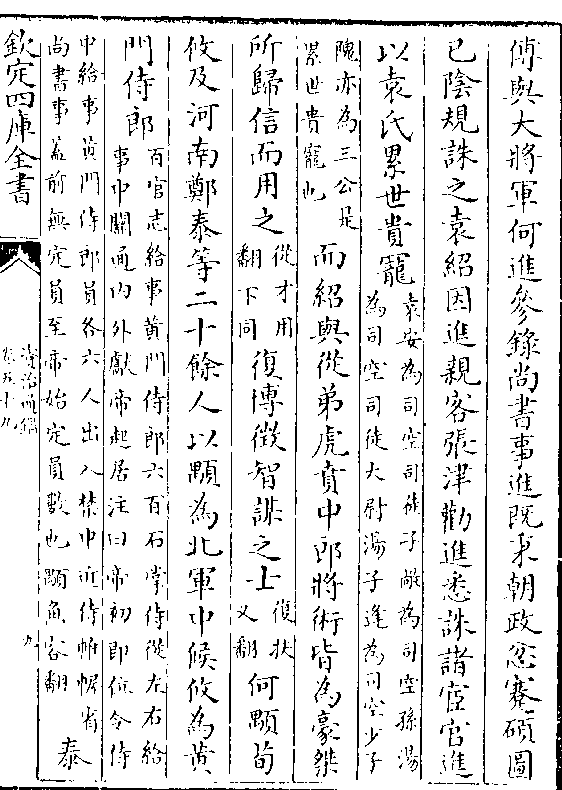 傅與大將軍何進參錄尚書事進既秉朝政忿蹇碩圖
已陰規誅之袁紹因進親客張津勸進悉誅諸宦官進
以袁氏累世貴寵
袁安為司空司徒子敞為司空孫湯
為司空司徒大尉湯子逢為司空少子
隗亦為三公是
累世貴寵也
而紹與從弟虎賁中郎將術皆為豪桀
所歸信而用之
從才用
翻下同
復博徵智謀之士
復扶
又翻
何顒荀
攸及河南鄭泰等二十餘人以顒為北軍中候攸為黃
門侍郎
百官志給事黃門侍郎六百石掌侍從左右給
事中關通内外獻帝起居注曰帝初即位令侍
中給事黃門侍郎員各六人出入禁中近侍帷幄省
尚書事蓋前無定員至帝始定員數也顒魚容翻
泰
欽定四庫全書
資治通鑑
卷五十九
九